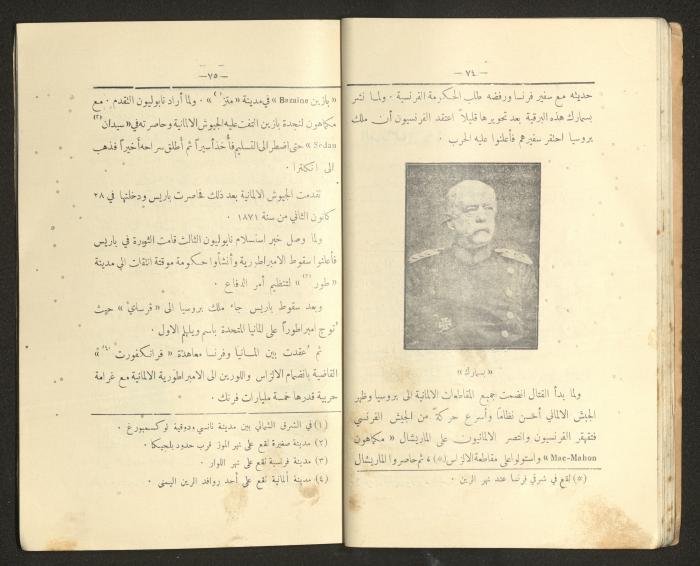 — ٧٤ —
حديثه مع سفير فرنسا ورفضه طلب الحكومة الفرنسية . ولما نشر
بسمارك هذه البرقية بعد تحويرها قليلا اعتقد الفرنسيون أن ملك
بروسيا احتقر سفيرهم فأعلنوا عليه الحرب .
« بسمارك »
ولما بدأ القتال انضمت جميع المقاطعات الالمانية الى بروسيا وظهر
الجيش الالماني أحسن نظاما وأسرع حركة من الجيش الفرنسي
فتقهقر الفرنسيون وانتصر الالمانيون على الماريشال « مكماهون
Mac-Mahon » واستولوا على مقاطعة الالزاس (*) ، ثم حاصروا الماريشال
(*) تقع في شرقي فرنسا عند نهر الرين .
— ٧٥ —
« بازين Bazaine » في مدينة « متز (١) » . ولما أراد نابوليون التقدم . مع
مكماهون لنجدة بازين التفت عليه الجيوش الالمانية وحاصرته في « سيدان (٢)
Sedan » حتى اضطر الى التسليم فأخذ أسيراً ثم أطلق سراحه أخيراً فذهب
الى انكلترا .
تقدمت الجيوش الالمانية بعد ذلك فحاصرت باريس ودخلتها في ٢٨
كانون الثاني من سنة ١٨٧١ .
ولما وصل خبر استسلام نابوليون الثالث قامت الثورة في باريس
فأعلنوا سقوط الامبراطورية وأنشأوا حكومة موقتة انتقلت الى مدينة
« طور (٣) » لتنظيم أمر الدفاع .
وبعد سقوط باريس جاء ملك بروسيا الى « فرساي » حيث
تُوج امبراطوراً على المانيا المتحدة باسم ويلهلم الاول .
ثم عُقدت بين المانيا وفرنسا معاهدة « فرانكفورت (٤) »
القاضية بانضمام الالزاس واللورين الى الامبراطورية الالمانية مع غرامة
حربية قدرها خمسة مليارات فرنك .
(١) في الشرق الشمالي بين مدينة نانسي ودوقية لوكسمبورغ .
(٢) مدينة صغيرة تقع على نهر الموز قرب حدود بلجيكا .
(٣) مدينة فرنسية تقع على نهر اللوار .
(٤) مدينة ألمانية تقع على أحد روافد الرين اليمنى .